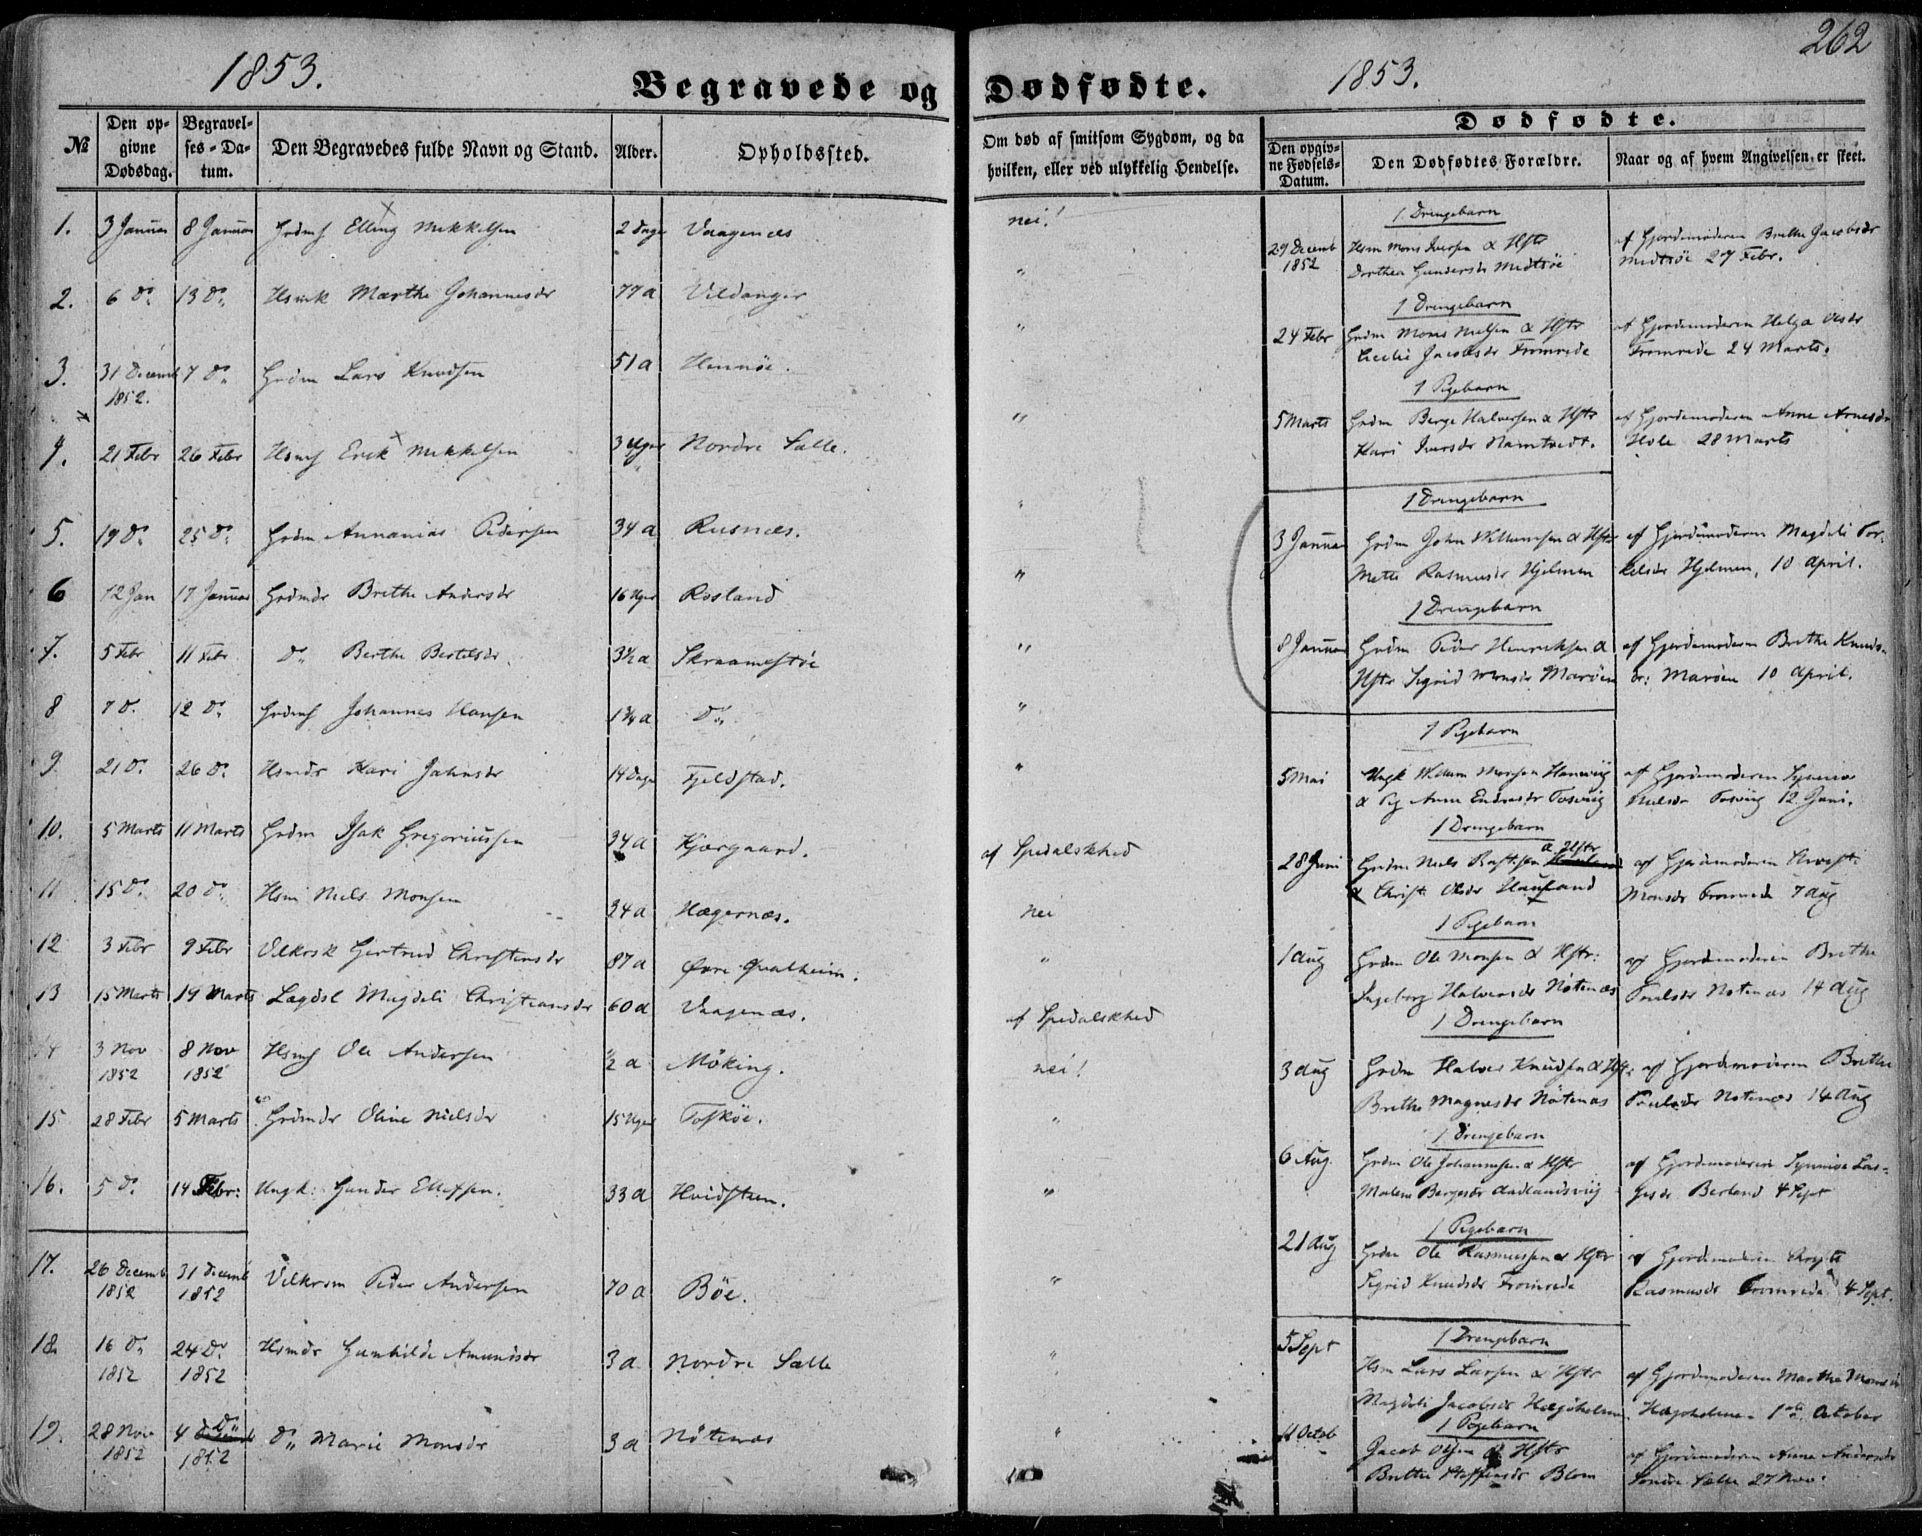 262
1853.
Begravede og Dødfødte.
1853.
№
Den opgivne Dødsdag.
Begravelses-Datum.
Den Begravedes fulde Navn og Stand.
Alder.
Opholdssted.
Om død af smitsom Sygdom, og da hvilken, eller ved ulykkelig Hendelse.
Dødfødte.
Den opgivne Fødsels-Datum.
Den Dødfødtes Forældre.
Naar og af hvem Angivelsen er skeet.
1. 3 Januar 8 Januar Grdmf Elling Mikkelsen 2 Dage Vaagenæs nei!
2. 6 Do 13 Do Marthe Johannesdr 77 a Vildanger "
3. 31 Decemb 1852. 7 Do Grdm Lars Knudsen 51 a Hennøe. "
4. 21 Febr 26 Febr Hsmf Erik Mikkelsen 3 Uger Nordre Sælle. "
5. 19 Do 25 Do Grdm Annanias Pedersen 34 a Rusnæs. "
6 12 Jan 17 Januar Grdmdr Brethe Andersdr 16 Uger Rosland "
7. 5 Febr 11 Febr Do Berthe Bertelsdr. 3½ a Skraamestøe "
8 7 D. 12 Do Grdmf Johannes Hansen 1¾ a Do "
9. 21 D. 26 Do Hsmdr Kari Johnsdr 14 Dage Fjeldstad. "
10. 5 Marts 11 Marts Grdm Isak Gregoriussen 34 a Kjærgaard. af Spedalskhed
11 15 Do 20 Do Hsm Niels Monsen 34 a Hægernæs. nei
12 3 Febr 9 Febr Gertrud Christensdr 87 a Øvre Qvalheim. "
13 15 Marts 19 Marts Lægdsl Magdeli Christiansdr 60 a Vaagenæs. af Spedalskhed
14 3 Nov 1852 8 Nov 1852 Hsmf Ole Andersen 2 a Møking. nei!
15 28 Febr 5 Marts Grdmdr Oline Nielsdr 15 Uger Toskøe. "
16. 5 Do 14 Febr: Ungk: Gunder Ellefsen. 33 a Hvidsteen. "
17. 26 Decemb 1852 31 Decemb 1852 Vilkrm Peder Andersen 70 a Bøe. "
18. 16 Do 1852 24 Do 1852 Hsmdr Gunhilde Amundsdr 3 a Nordre Sælle "
19. 28 Nov 1852 4 Do 1852 Do Marie Monsdr 3 a Nøtenæs "
1 Drengebarn
29 Decemb 1852 Hsm Mons Iversen & Hstr af Gjordemoderen Brithe Jacobsdr
Dorthea Gundersdr Midtsøe Midtsøe 27 Febr.
1 Drengebarn
24 Febr Grdm Mons Nielsen & Hstr af Gjordemoderen Helga Olsdr
Cecilie Jacobsdr Fromrede Fromrede 24 Marts.
1 Pigebarn
5 Marts Grdm Berge Halversen & Hstr af Gjordemoderen Anne Arnesdr
Kari Iversdr Namtvedt. Hole 28 Marts
1 Drengebarn
3 Januar Grdm John Willumsen & Hstr af Gjordemoderen Magdeli Tor-
Mette Rasmusdr Hjelmen kelsdr Hjelmen, 10 April.
1 Drengebarn
8 Januar Grdm Peder Henriksen & af Gjordemoderen Brithe Knuds-
Hstr Sigrid Monsdr Marøen dr: Marøen 10 April.
1 Pigebarn
5 Mai Ungk Willum Monsen Hanevig af Gjordemoderen Synneve
& Pig Anne Endresdr Tosvig Nielsdr Tosvig 12 Juni.
1 Drengebarn
28 Juni Grdm Niels & Hstr af Gjordemoderen
& Christi Olsdr Haukaand Monsdr Fromrede 7 Aug
1 Pigebarn
1 Aug Grdm Ole Monsen & Hstr: af Gjordemoderen Brithe
Ingeborg Halversdr Nøtenæs Poulsdr Nøtenæs 14 Aug
1 Drengebarn
3 Aug Grdm Halver Knudsen & Hstr: af Gjordemoderen Brithe
Brithe Magnesdr Nøtenæs Poulsdr Nøtenæs 14 Aug
1 Drengebarn
6 Aug. Grdm Ole Johannessen & Hstr af Gjordemoderen Synneve Lar-
Malene Bergesdr Aadlandsvig 4 Sept
1 Pigebarn
21 Aug Grdm Ole Rasmussen & Hstr af Gjordemoderen
Sigrid Knudsdr Fromrede Rasmusdr Fromrede 4 Sept.
1 Drengebarn
5 Sept Hsm Lars Larsen & Hstr af Gjordemoderen Marthe Monsdr
Magdeli Jacobsdr Hægholmen Hægholmen 1ste October
1 Pigebarn
11 Octob Jacob Olsen & Hstr af Gjordemoderen Anne Andersdr
Brithe Steffensdr Blom Sælle 27 Nov: